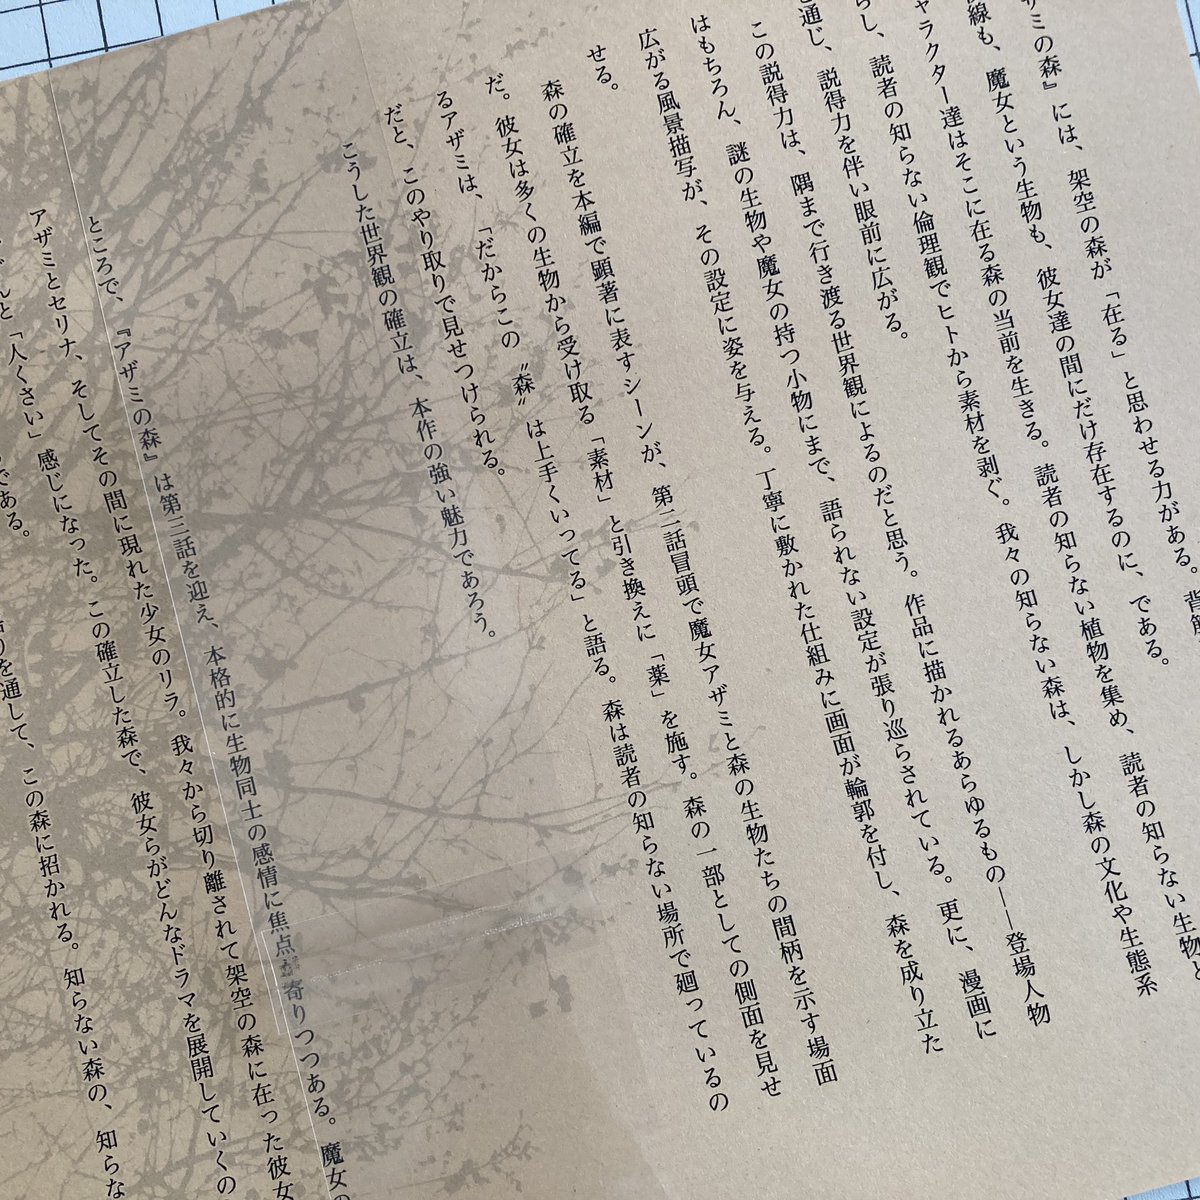 ザミの森』には、架空の森が「在る」と思わせる力がある。背
線も、魔女という生物も、彼女達の間にだけ存在するのに、である。
ャラクター達はそこに在る森の当前を生きる。読者の知らない植物を集め、読者の知らない生物と
らし、読者の知らない倫理観でヒトから素材を剥ぐ。我々の知らない森は、しかし森の文化や生態系
通じ、説得力を伴い眼前に広がる。
この説得力は、隅まで行き渡る世界観によるのだと思う。作品に描かれるあらゆるもの――登場人物
はもちろん、謎の生物や魔女の持つ小物にまで、語られない設定が張り巡らされている。更に、漫画に
広がる風景描写が、その設定に姿を与える。丁寧に敷かれた仕組みに画面が輪郭を付し、森を成り立た
せる。
森の確立を本編で顕著に表すシーンが、第二話冒頭で魔女アザミと森の生物たちの間柄を示す場面
だ。彼女は多くの生物から受け取る「素材」と引き換えに「薬」を施す。森の一部としての側面を見せ
るアザミは、「だからこの〝森〟は上手くいってる」と語る。森は読者の知らない場所で廻っているの
だと、このやり取りで見せつけられる。
こうした世界観の確立は、本作の強い魅力であろう。
ところで、『アザミの森』は第三話を迎え、本格的に生物同士の感情に焦点が寄りつつある。魔女の
アザミとセリナ、そしてその間に現れた少女のリラ。我々から切り離されて架空の森に在った彼女
んと「人くさい」感じになった。この確立した森で、彼女らがどんなドラマを展開していくの
である。
りを通して、この森に招かれる。知らない森の、知らな